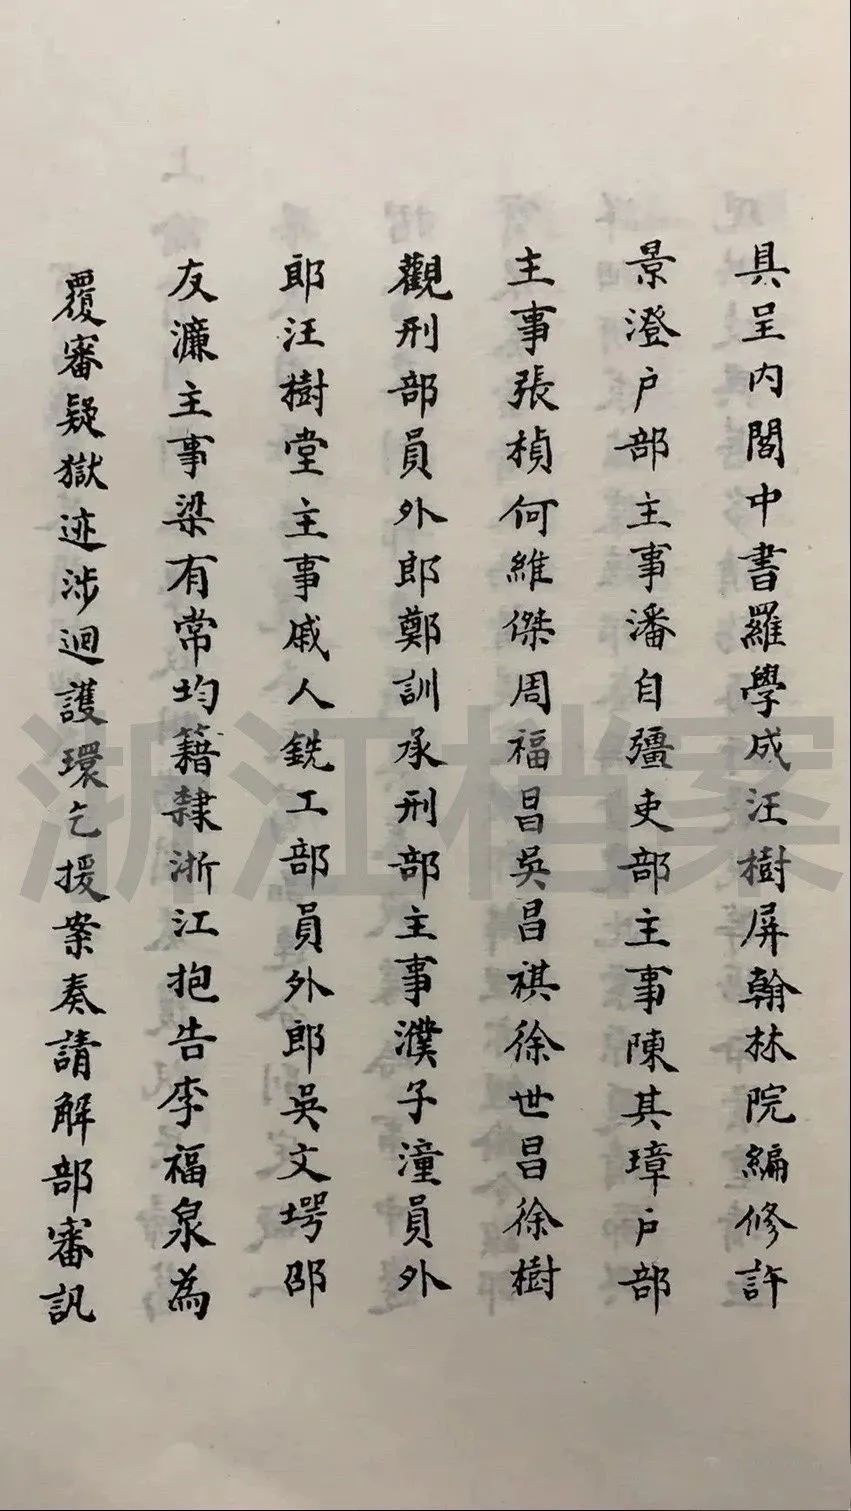 具呈内閣中書羅學成汪樹屏翰林院編修許
景澄户部主事潘自彊吏部主事陳其璋户部
主事張楨何維傑周福昌吳昌祺徐世昌徐樹
觀刑部員外郎鄭訓承刑部主事濮子潼員外
郎汪樹堂主事戚人銑工部員外郎吳文堮邵
友濂主事梁有常均籍隸浙江抱告李福泉為
覆審疑獄迹涉迴護環乞援案奏請解部審訊
浙江档案